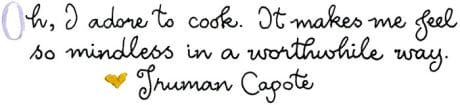 Oh, I adore to cook. It makes me feel
so mindless in a worthwhile way.
Truman Capote